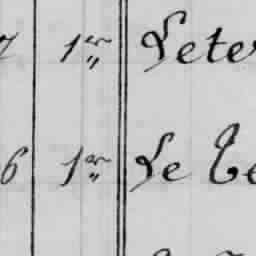 7 1er Leter
6 1er Le Te